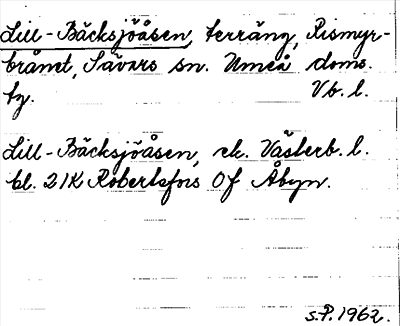 Lill-Bäcksjöåsen, terräng, Rismyr-
brånet, Sävars sn. Umeå doms.
tg. Vb. l.
Lill-Bäcksjöåsen, ek. Västerb. l.
bl. 21K Robertsfors 0f Åbyn.
S.P. 1962.